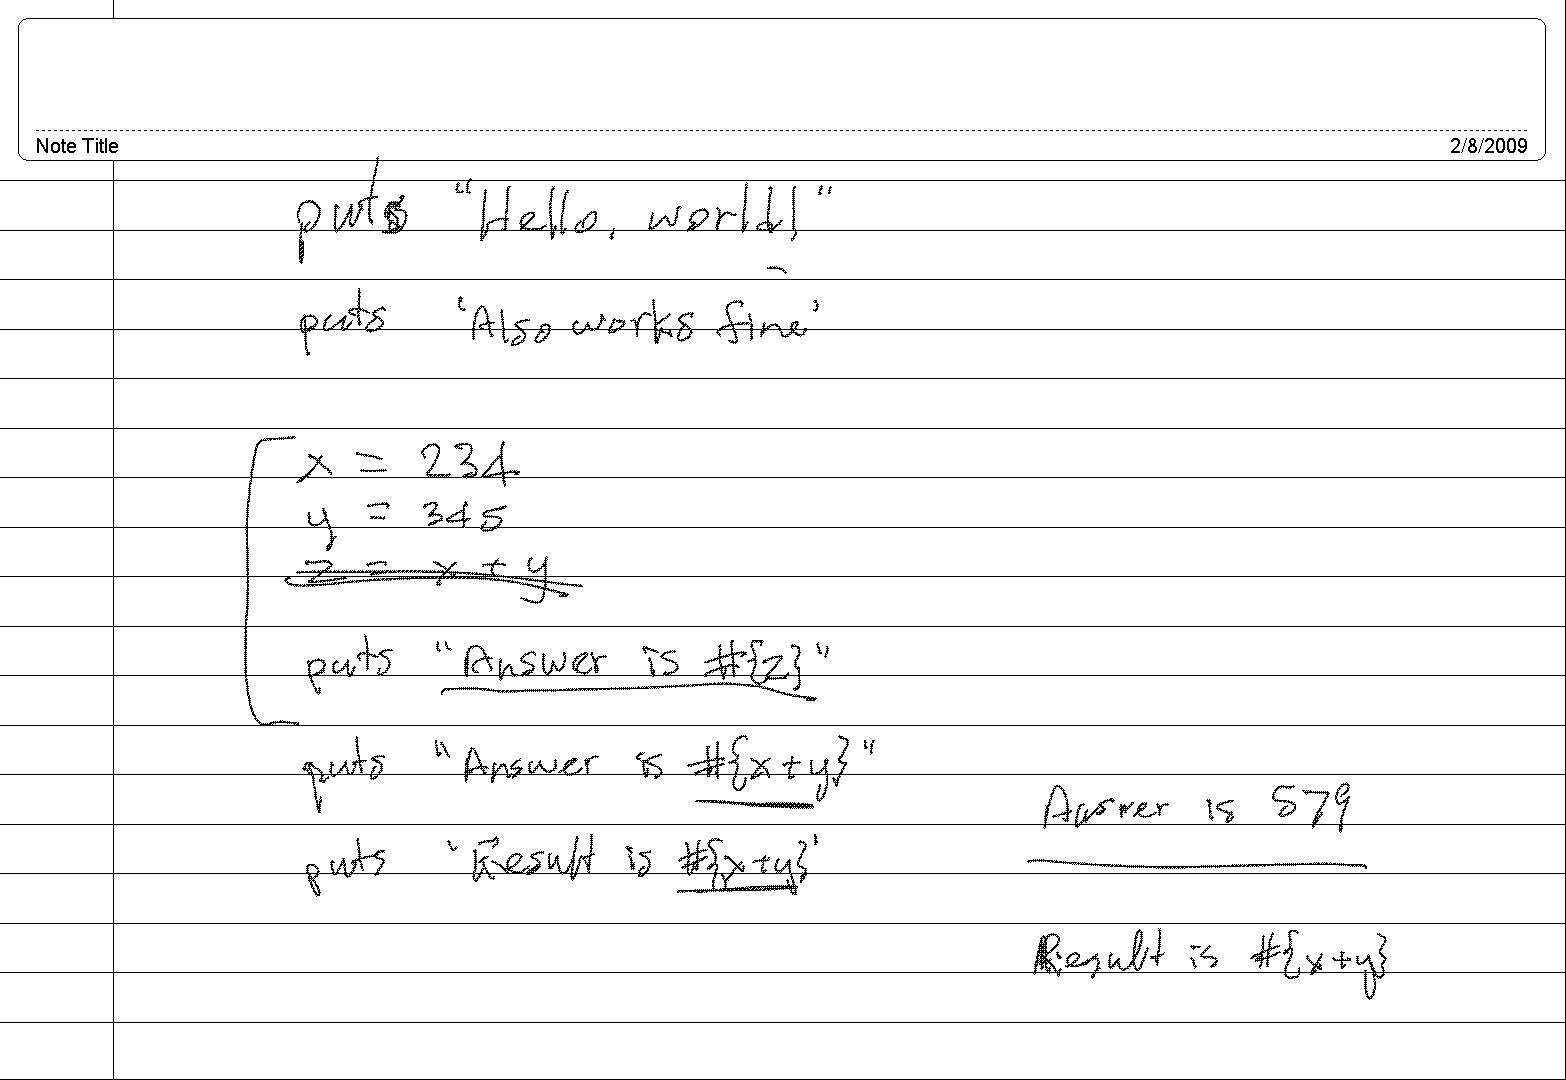 Note Title 2/8/2009
puts "Hello, world!"
puts 'Also works fine'
x = 234
y = 345
z = x + y
puts "Answer is #{z}"
puts "Answer is #{x+y}"
Answer is 579
puts 'Result is #{x+y}'
Result is #{x+y}